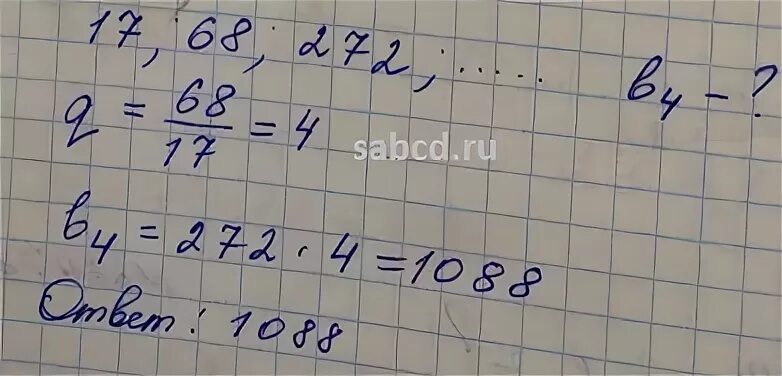 17; 68; 272; ..... b₄ – ?
q = 68/17 = 4
sabcd.ru
b₄ = 272 · 4 = 1088
Ответ: 1088